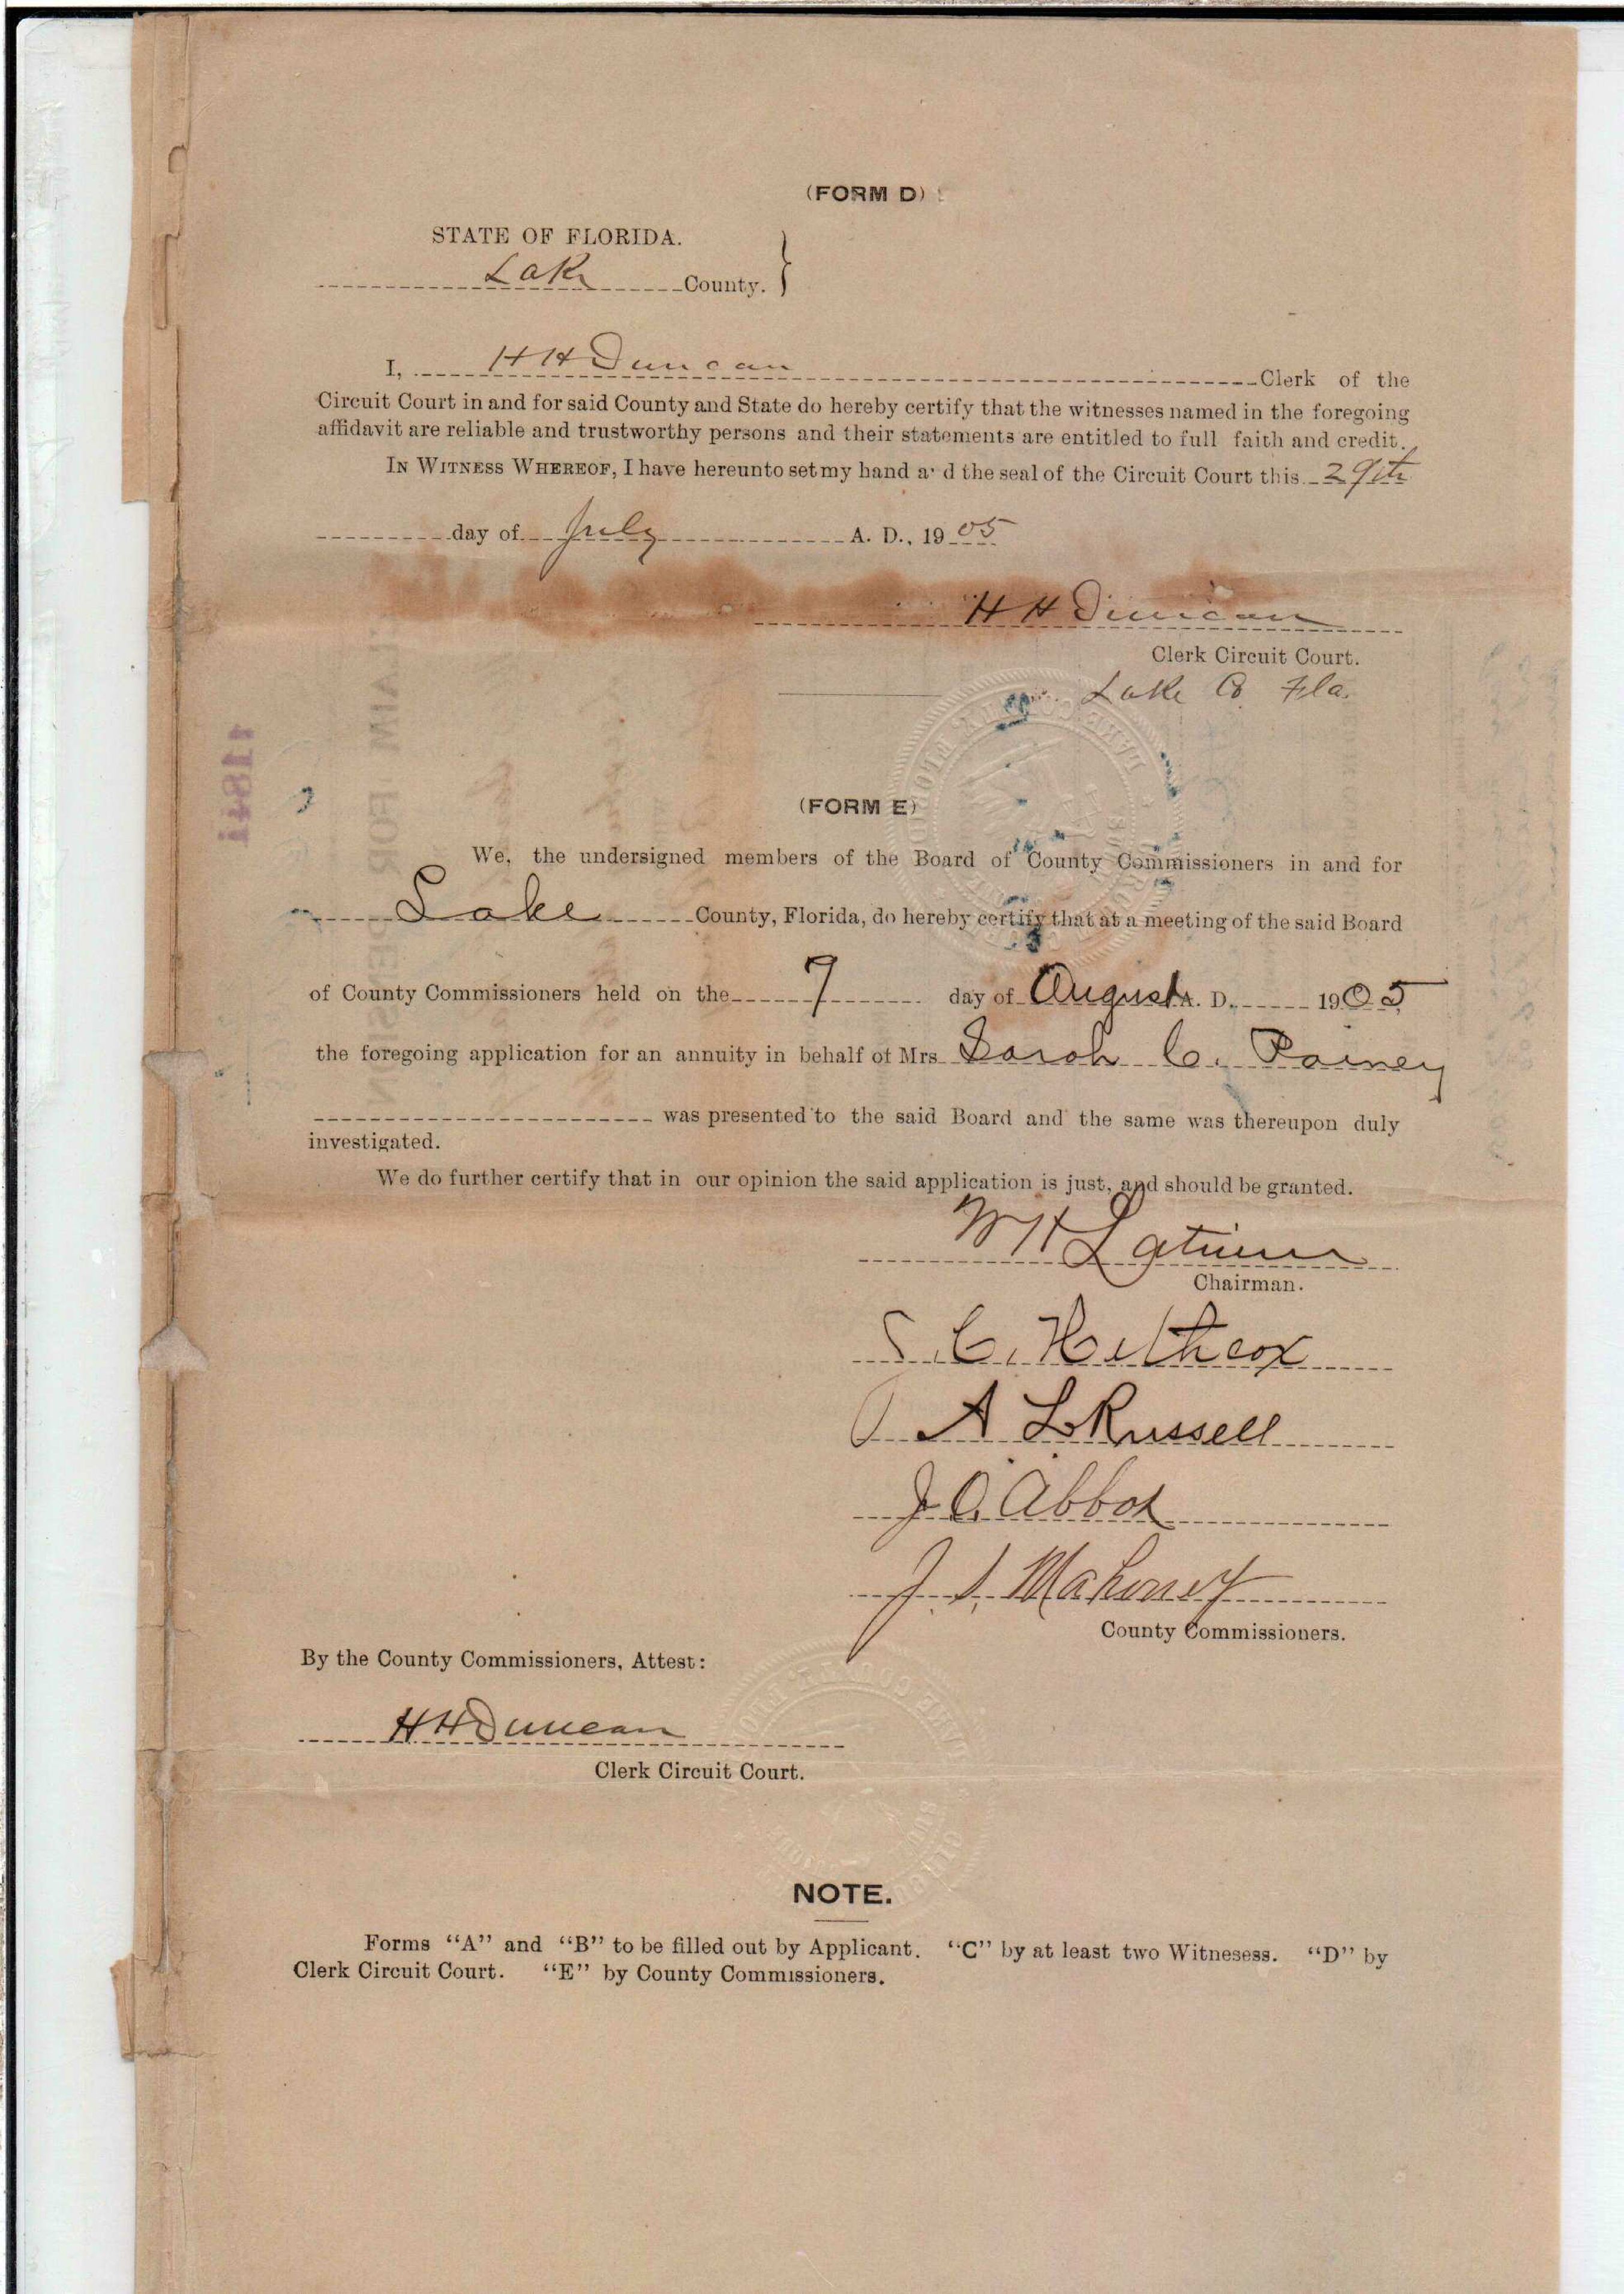 (FORM D)
STATE OF FLORIDA.
Lake County.
I, H H Duncan Clerk of the
Circuit Court in and for said County and State do hereby certify that the witnesses named in the foregoing
affidavit are reliable and trustworthy persons and their statements are entitled to full faith and credit.
IN WITNESS WHEREOF, I have hereunto set my hand a d the seal of the Circuit Court this 29th
day of July A. D., 1905
H H Duncan
Clerk Circuit Court.
Lake Co. Fla.
(FORM E)
We, the undersigned members of the Board of County Commissioners in and for
Lake County, Florida, do hereby certify that at a meeting of the said Board
of County Commissioners held on the 7 day of August A. D. 1905
the foregoing application for an annuity in behalf of Mrs Sarah C. Rainey
was presented to the said Board and the same was thereupon duly
investigated.
We do further certify that in our opinion the said application is just, and should be granted.
W H Latimer
Chairman.
C.
A L Russell
J. C. Abbot
J. S. Mahoney
County Commissioners.
By the County Commissioners, Attest:
H H Duncan
Clerk Circuit Court.
NOTE.
Forms "A" and "B" to be filled out by Applicant. "C" by at least two Witnesess. "D" by
Clerk Circuit Court. "E" by County Commissioners.